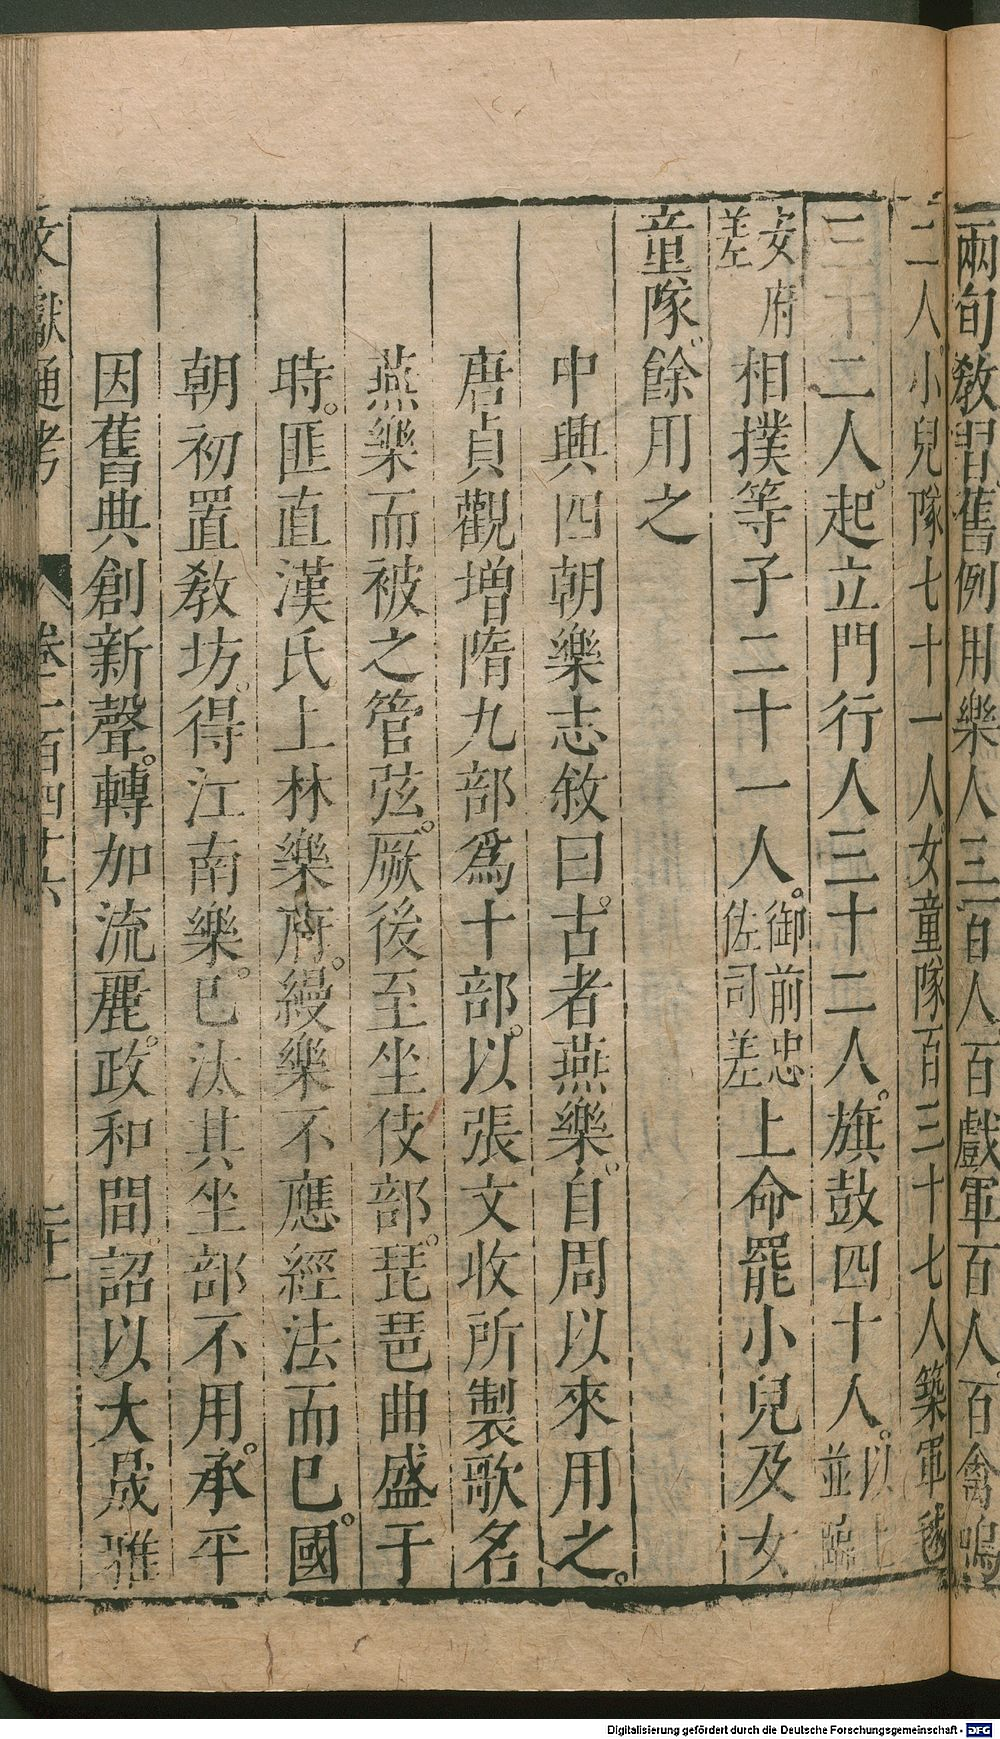 兩旬教習舊例用樂人三百人百戲軍百人百禽鳴
二人小兒隊七十一人女童隊百三十七人築軍毬
三十二人起立門行人三十二人旗鼓四十人以上並臨
安府差相撲等子二十一人御前忠佐司差上命罷小兒及女
童隊餘用之
中興四朝樂志敘曰古者燕樂自周以來用之
唐貞觀增隋九部爲十部以張文收所製歌名
燕樂而被之管弦厥後至坐伎部琵琶曲盛于
時匪直漢氏上林樂府縵樂不應經法而已國
朝初置教坊得江南樂已汰其坐部不用承平
因舊典創新聲轉加流麗政和間詔以大晟雅
文獻通考 卷一百四十六 二十一
Digitalisierung gefördert durch die Deutsche Forschungsgemeinschaft - DFG